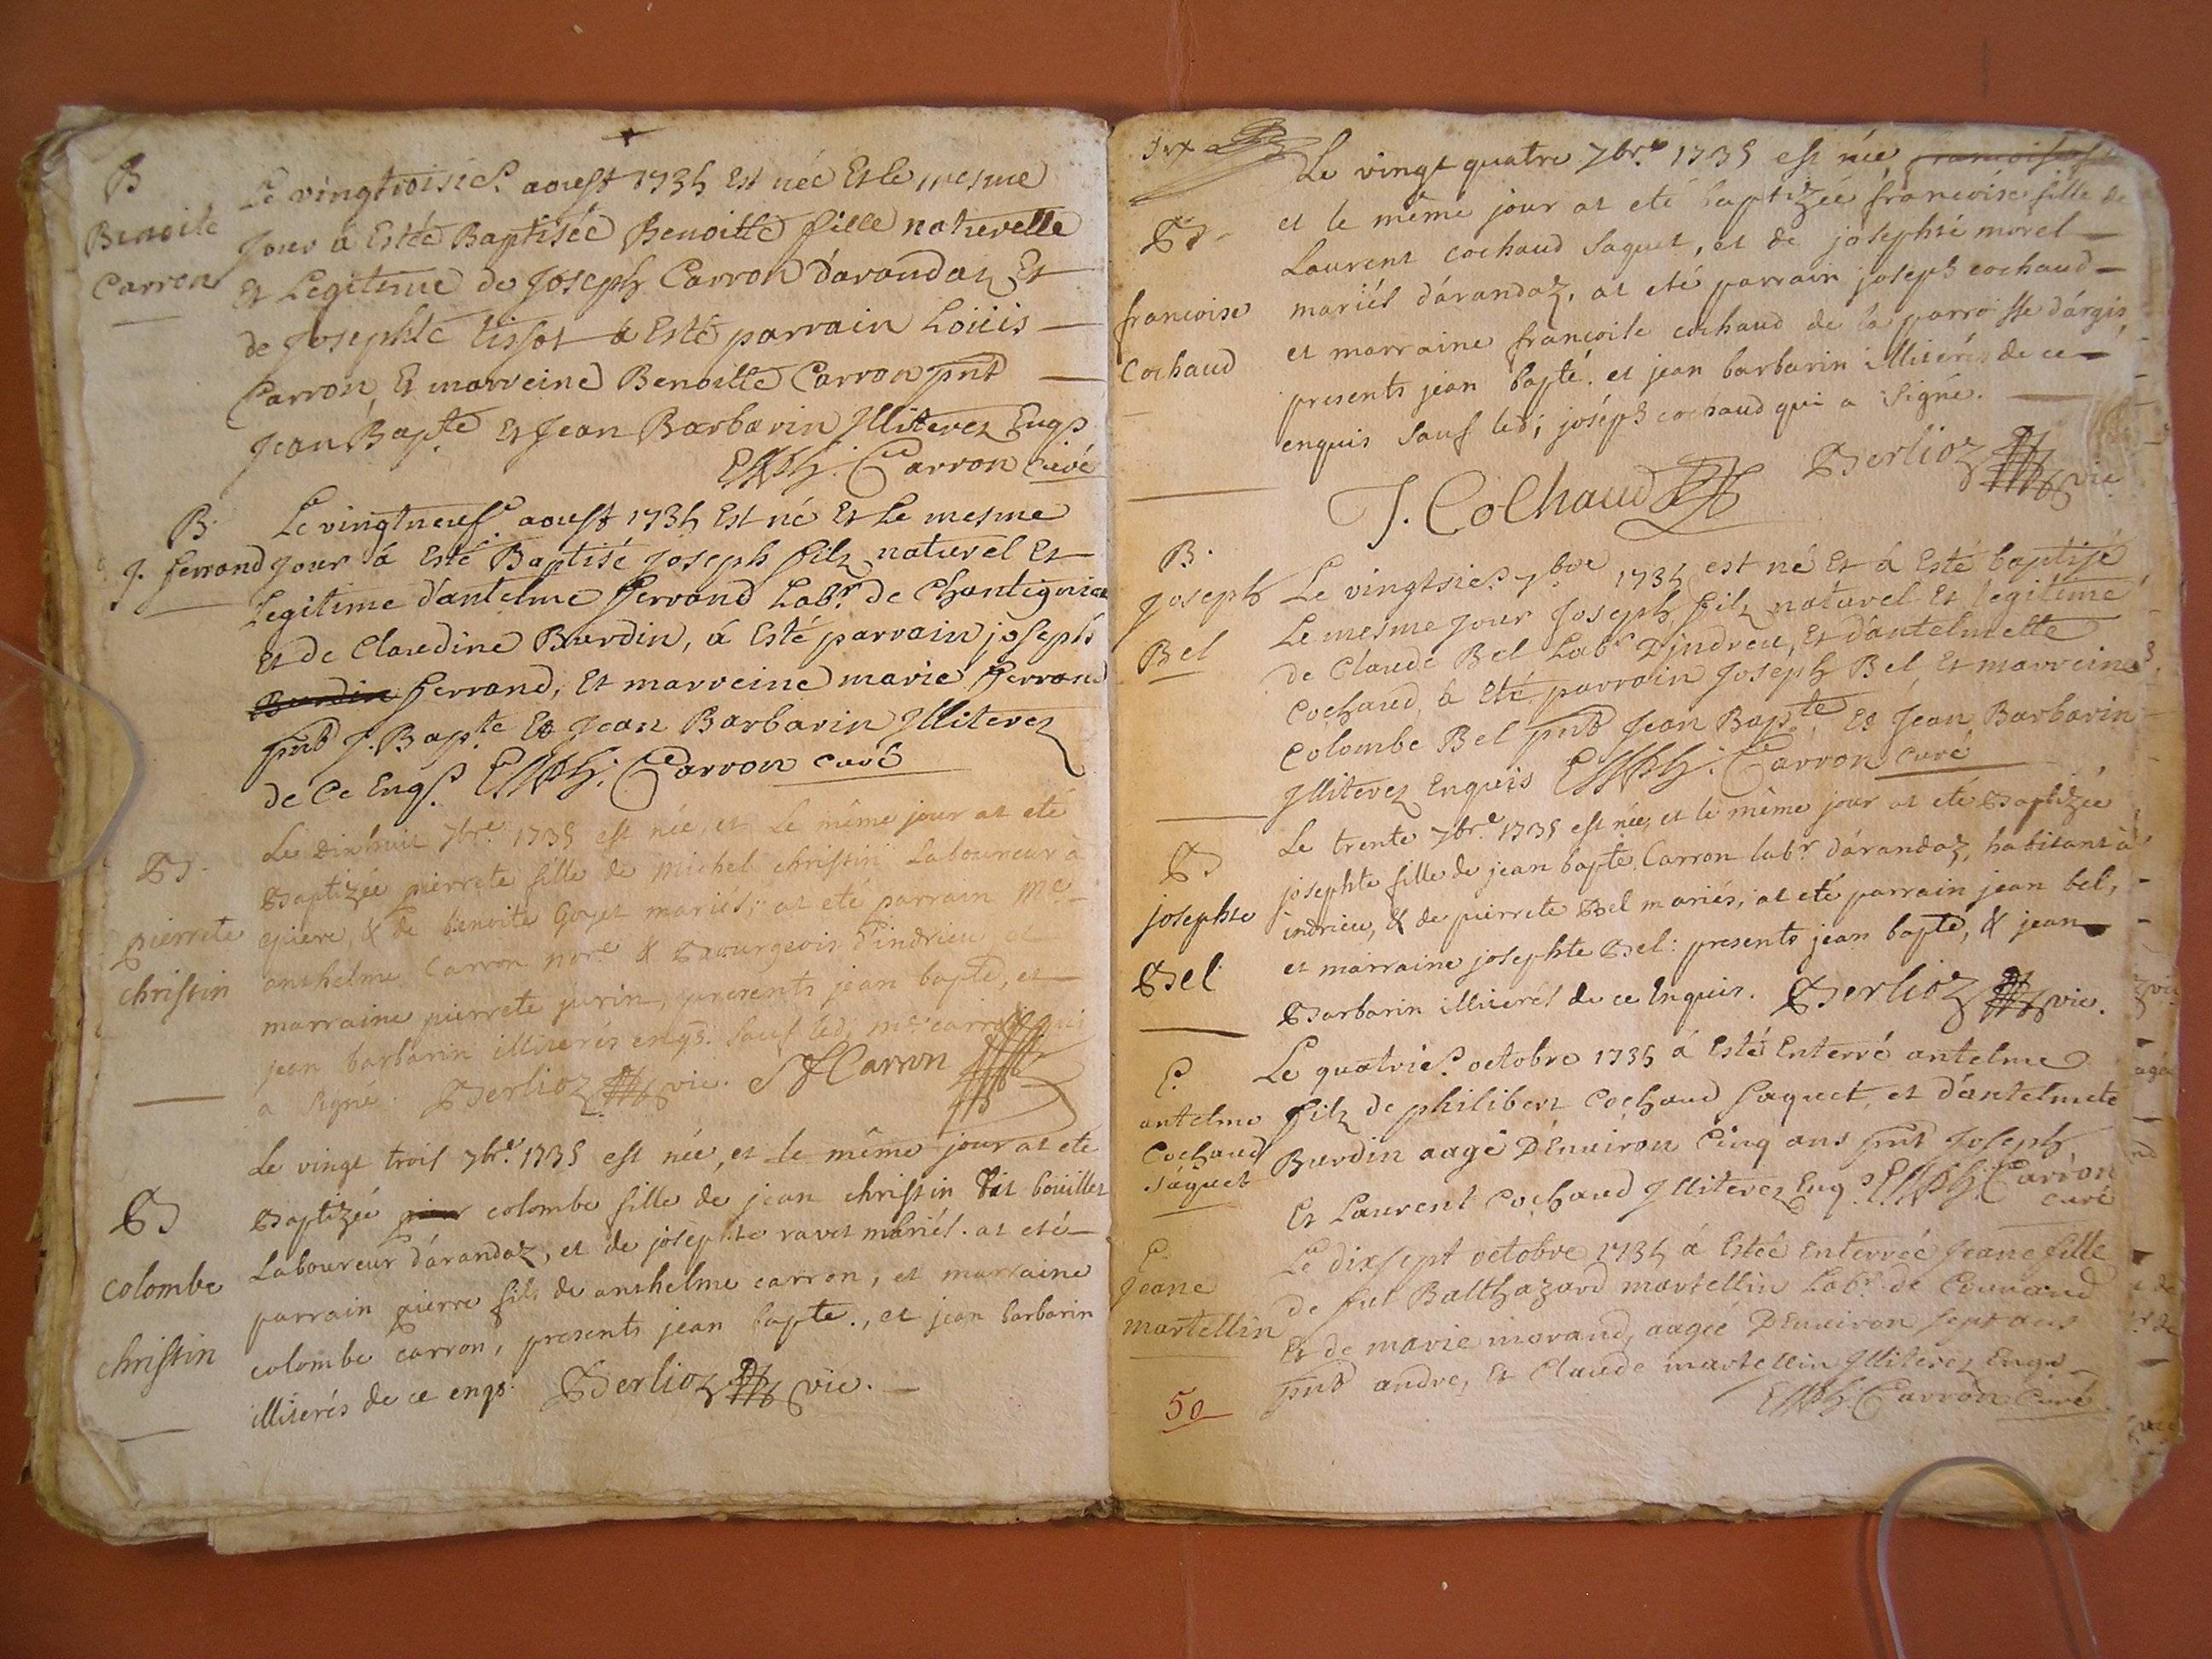 B
Benoite
Carron
Le vingtroisie.e aoust 1735 Est née Et le mesme
Jour á Estée Baptisée Benoitte fille naturelle
Et Legitime de Joseph Carron d'arandaz Et
de Josephte tissot á Esté parrain Loüis
Carron, Et marreine Benoitte Carron pnts
Jean Bapte Et Jean Barbarin Illiterez Enqs
Carron curé
B.
J. ferrand
Le vingtneuf.e aoust 1735 Est né Et Le mesme
Jour á Esté Baptisé Joseph filz naturel Et
Legitime d'antelme ferrand Labr. de
Et de Claudine Burdin, á Esté parrain joseph
Burdin ferrand, Et marreine marie ferrand
pnts J. Bapte Et Jean Barbarin Illiterez
de Ce Enqs. Carron curé
B.
pierrete
christin
Le Dixhuit 7bre. 1735 est née, et Le même jour at eté
Baptizée pierrete fille de Michel christin Laboureur à
& de benoite Goyet mariés; at eté parrain Me.
anthelme Carron nore. & Bourgeois d'indrieu et
marraine pierrete jurin, presents jean bapte, et
jean barbarin illiterés enqs. sauf led; me. carron qui
a signé. Berlioz vic. Carron
B
colombe
christin
Le vingt trois 7bre. 1735 est née, et le même jour at eté
Baptizée colombe fille de jean christin dit boüillet
Laboureur d'arandaz, et de josephte ravet mariés. at eté
parrain pierre fils de anthelme carron, et marraine
colombe carron, presents jean bapte., et jean barbarin
illiterés de ce enqs. Berlioz vic.
B.
francoise
Cochaud
Le vingt quatre 7bre. 1735 est née
et le même jour at eté baptizée francoise fille de
Laurent cochaud saquet, et de josephte morel
mariés d'arandaz, at eté parrain joseph cochaud
et marraine francoise cochaud de la parroisse d'argis
presents jean bapte. et jean barbarin illiterés de ce
enquis sauf led; joseph cochaud qui a signé.
J. Colhaud Berlioz vic
B.
Joseph
Bel
Le vingtsie.e 7bre 1735 est né Et á Esté baptisé
Le mesme jour Joseph filz naturel Et legitime
de Claude Bel Labr. D'indreu, Et d'antelmette
Cochaud, á Eté parrain Joseph Bel, Et marreine
Colombe Bel pnts Jean Bapte, Et Jean Barbarin
Illiterez Enquis Carron curé
B
josephte
Bel
Le trente 7bre. 1735 est née, et le même jour at eté Baptizée
josephte fille de jean bapte. Carron labr. d'arandaz, habitant à
indrieu, & de pierrete Bel mariés, at eté parrain jean bel,
et marraine josephte Bel: presents jean bapte, & jean
Barbarin illiterés de ce Enquis. Berlioz vic.
E.
antelme
Cochaud
saquet
Le quatrie.e octobre 1735 á Esté Enterré antelme
filz de philibert Cochaud saquet, et d'antelmete
Burdin aagé D'Enuiron Cinq ans pnts Joseph
Et Laurent Cochaud Illiterez Enqs. Carron
curé
E.
Jeane
martellin
Le dixsept octobre 1735 á Estée Enterrée Jeane fille
de fut Balthazard martellin Labr. de
Et de marie morand, aagée D'Enuiron sept ans
pnts andre, Et Claude martellin Illiterez Enqs
Carron curé.
50